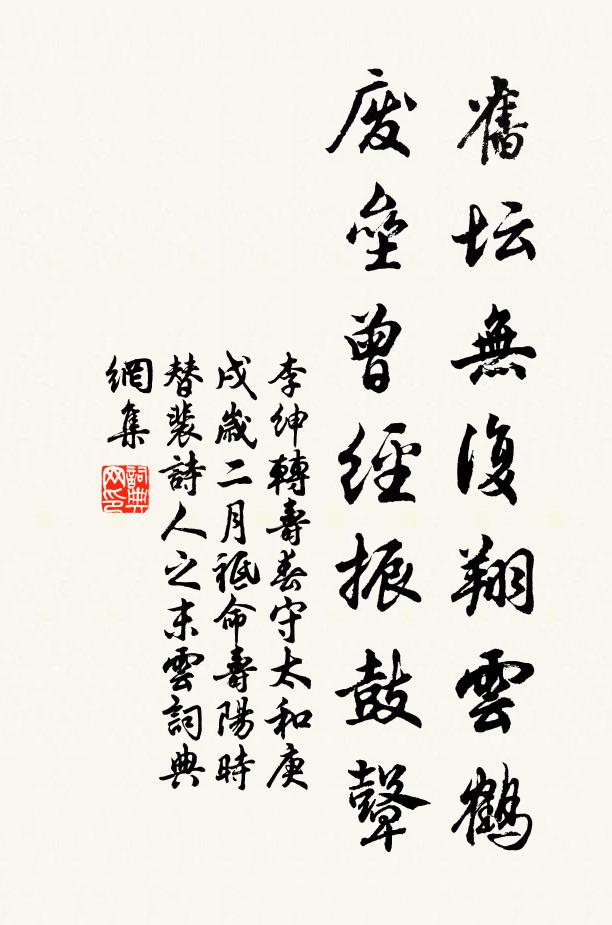 舊坛無復翔雲鶴
废垒曾經振鼓鼙
李紳轉壽春守太和庚
戌歲二月祗命壽陽時
替裴詩人之末雲詞典
網集
詞典网印